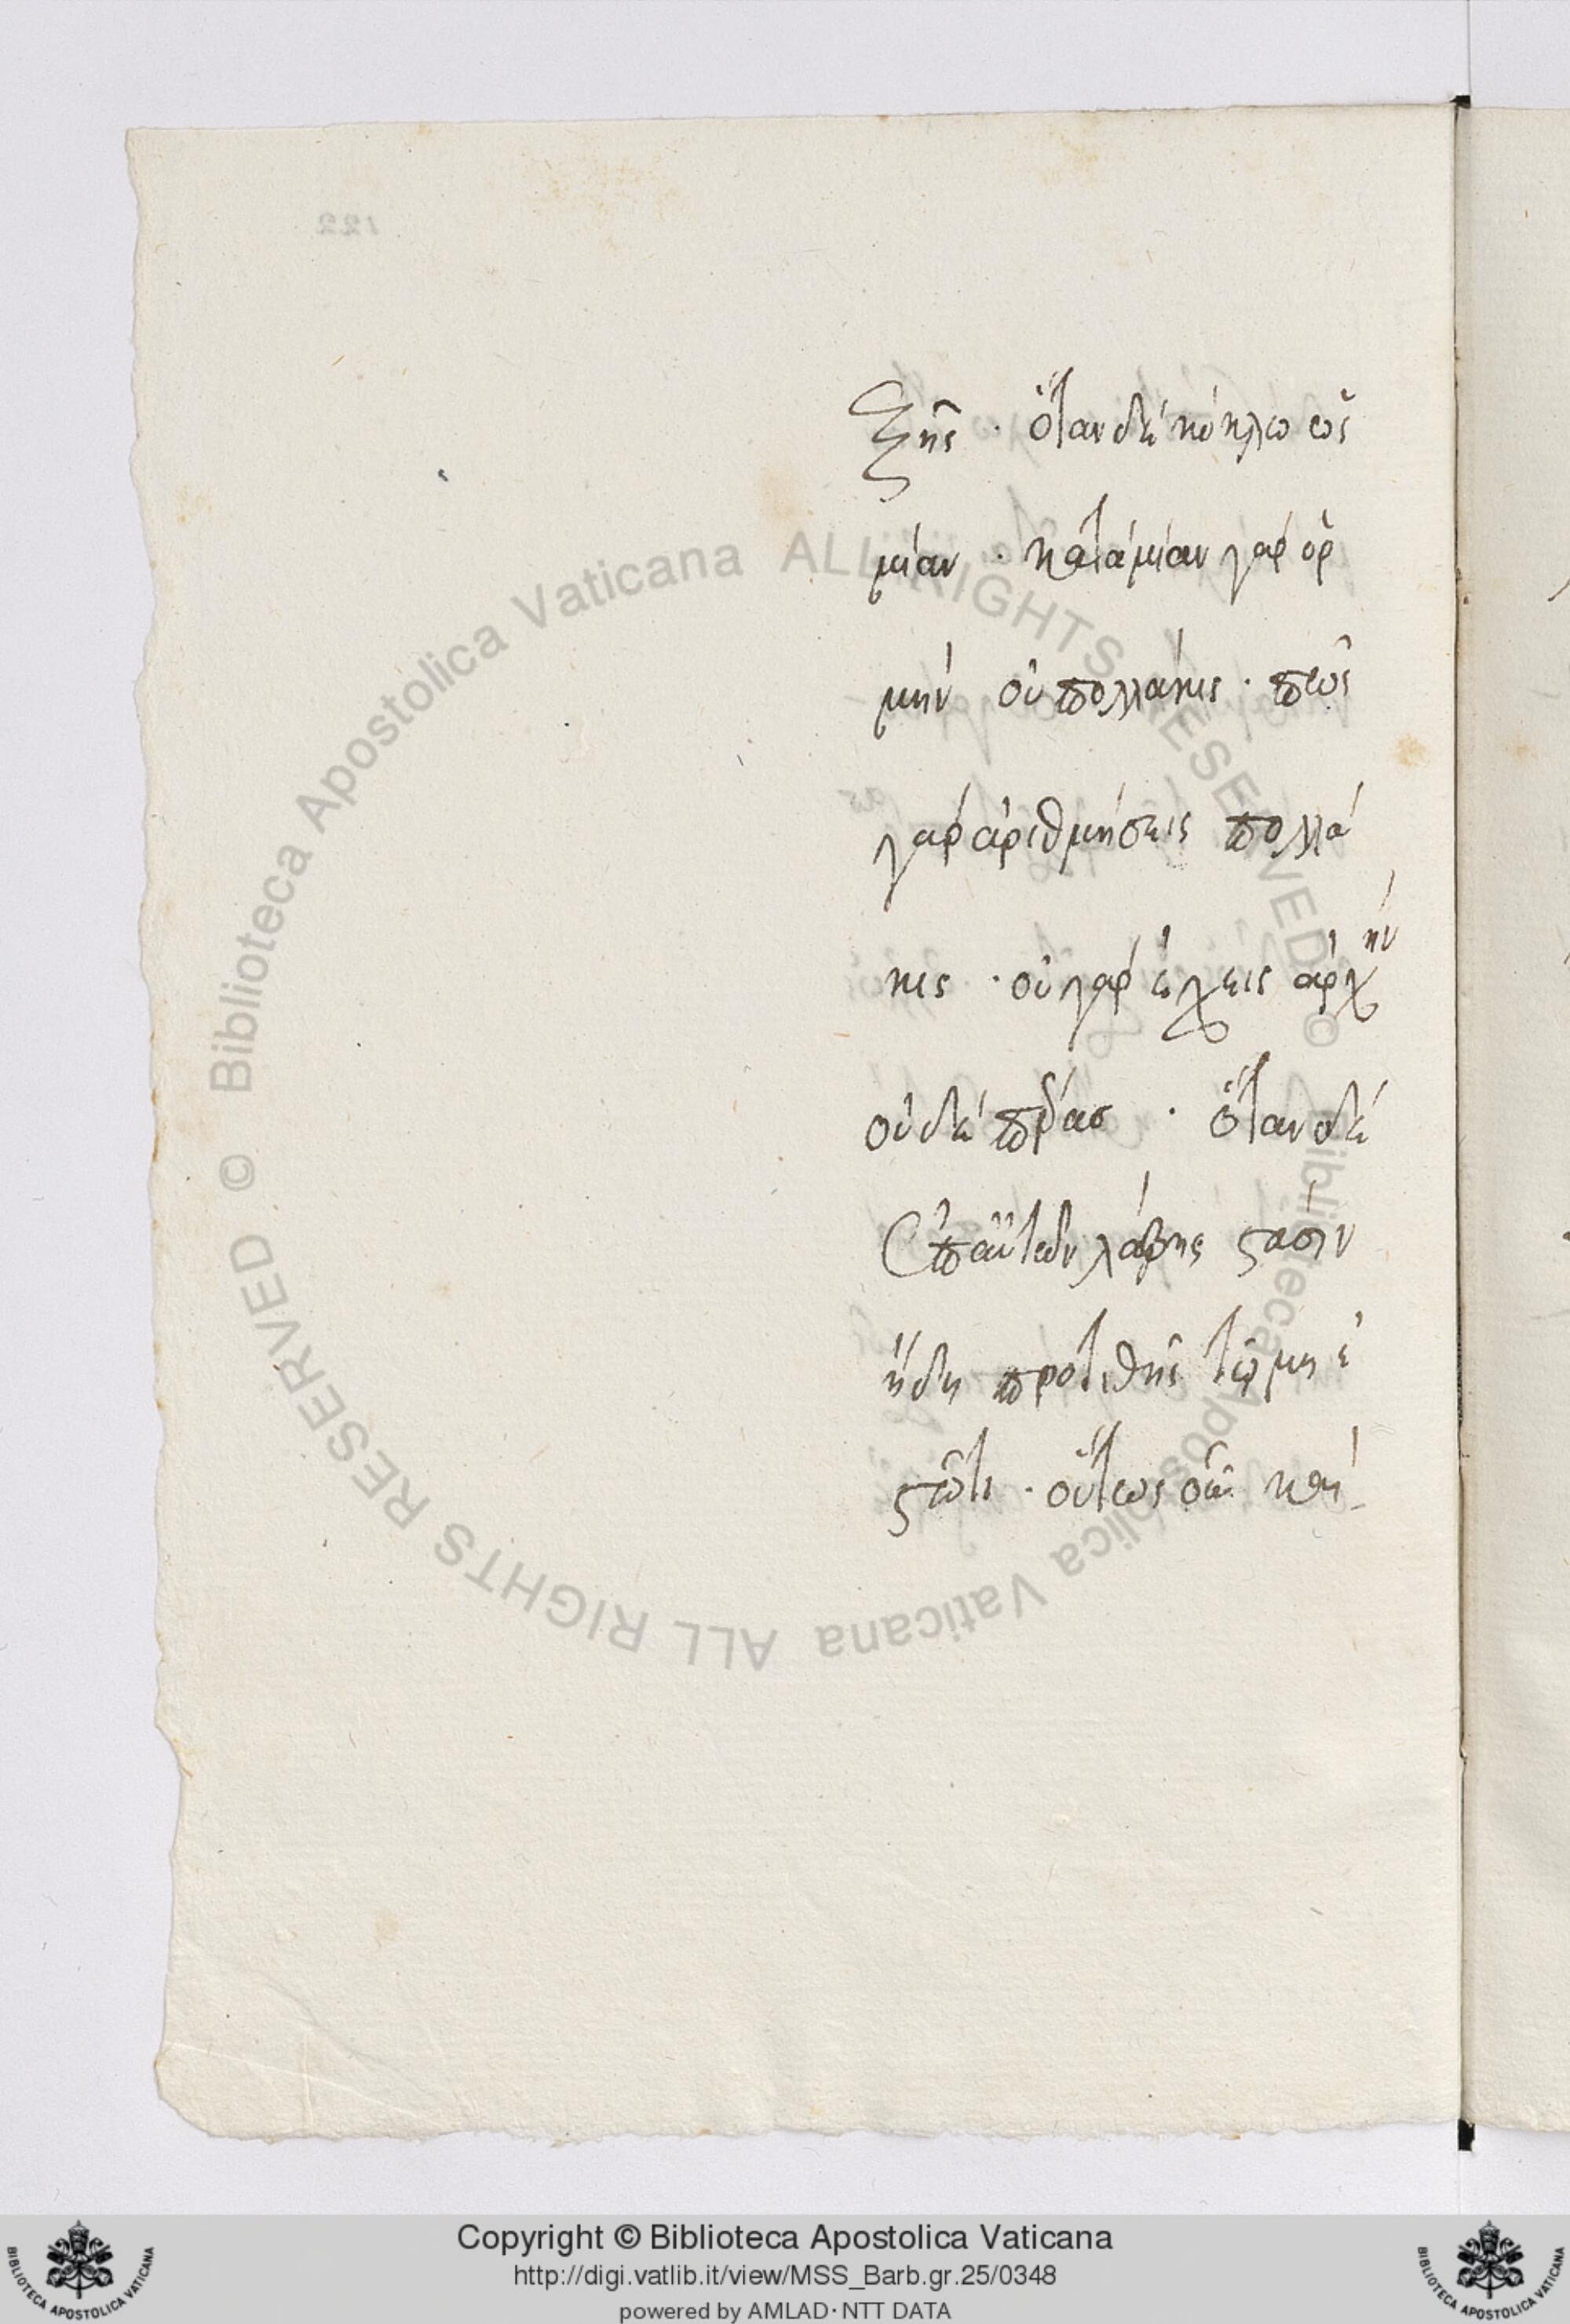 ξῆς · ὅταν δὲ κύκλῳ ὡς
μίαν · κατὰ μίαν γὰρ ὁρ
μὴν οὐ πολλάκις · πῶς
γὰρ ἀριθμήσεις πολλά
κις · οὐ γὰρ ἔχεις ἀρχὴν
οὐδὲ πέρας · ὅταν δὲ
ἐπ' αὐτῶν λάβῃς στάσιν
ἤδη προστιθῇς τῷ μὴ ἑ
στῶτι · οὕτως οὖν καὶ
122
Biblioteca Apostolica Vaticana ALL RIGHTS RESERVED ©
Biblioteca Apostolica Vaticana ALL RIGHTS RESERVED ©
Copyright © Biblioteca Apostolica Vaticana
http://digi.vatlib.it/view/MSS_Barb.gr.25/0348
powered by AMLAD · NTT DATA
BIBLIOTECA APOSTOLICA VATICANA
BIBLIOTECA APOSTOLICA VATICANA